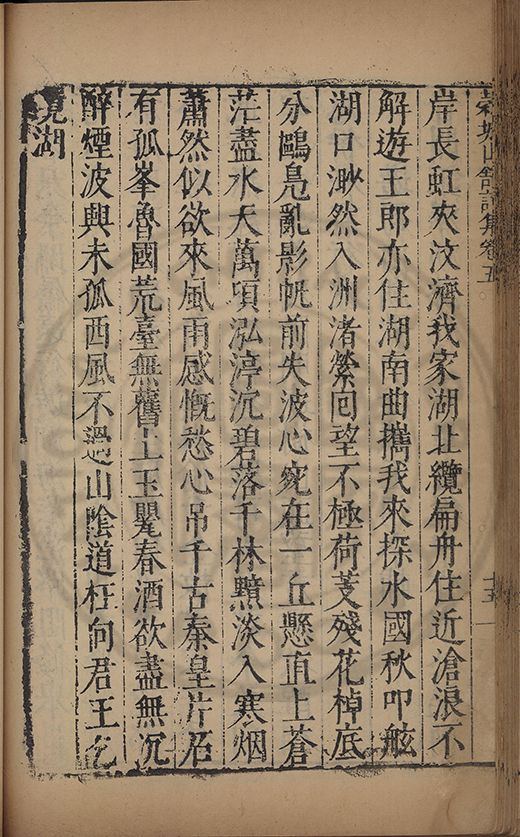 穀城山館詩集卷五
十五
岸長虹夾汶濟我家湖北纜扁舟住近滄浪不
解遊王郎亦住湖南曲攜我來探水國秋叩舷
湖口渺然入洲渚縈回望不極荷芰殘花棹底
分鷗鳧亂影帆前失波心宛在一丘懸直上蒼
茫盡水天萬頃泓渟沉碧落千林黯淡入寒烟
蕭然似欲來風雨感慨愁心吊千古秦皇片石
有孤峯魯國荒臺無舊土玉斝春酒欲盡無沉
醉煙波興未孤西風不過山陰道枉向君王乞
鏡湖